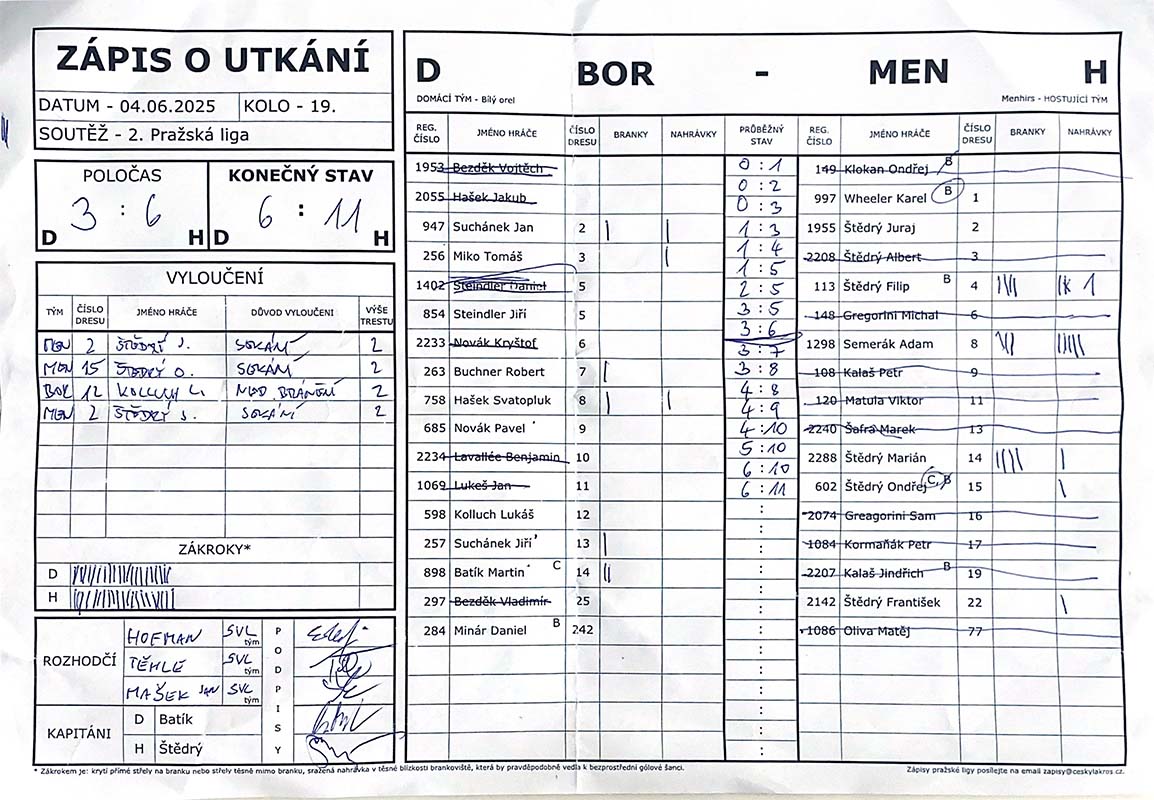 ZÁPIS O UTKÁNÍ
DATUM - 04.06.2025 KOLO - 19.
SOUTĚŽ - 2. Pražská liga
POLOČAS KONEČNÝ STAV
3 : 6 6 : 11
D H D H
VYLOUČENÍ
TÝM ČÍSLO DRESU JMÉNO HRÁČE DŮVOD VYLOUČENI VÝŠE TRESTU
MEN 2 ŠTĚDRÝ J. SEKÁNÍ 2
MEN 15 ŠTĚDRÝ O. SEKÁNÍ 2
BOR 12 KOLLUCH L. NED BRÁNĚNÍ 2
MEN 2 ŠTĚDRÝ J. SEKÁNÍ 2
ZÁKROKY*
D
H
ROZHODČÍ
HOFMAN SVL tým
TĚHLE SVL tým
MAŠEK JAN SVL tým
PODPISY
KAPITÁNI
D Batík
H Štědrý
D BOR - MEN H
DOMÁCÍ TÝM - Bílý orel Menhirs - HOSTUJÍCÍ TÝM
REG. ČÍSLO JMÉNO HRÁČE ČÍSLO DRESU BRANKY NAHRÁVKY PRŮBĚŽNÝ STAV REG. ČÍSLO JMÉNO HRÁČE ČÍSLO DRESU BRANKY NAHRÁVKY
1953 Bezděk Vojtěch
2055 Hašek Jakub
947 Suchánek Jan 2 | |
256 Miko Tomáš 3 |
1402 Steindler Daniel 5
854 Steindler Jiří 5
2233 Novák Kryštof 6
263 Buchner Robert 7 |
758 Hašek Svatopluk 8 | |
685 Novák Pavel 9
2234 Lavallée Benjamin 10
1069 Lukeš Jan 11
598 Kolluch Lukáš 12
257 Suchánek Jiří 13 |
898 Batík Martin C 14 ||
297 Bezděk Vladimír 25
284 Minár Daniel B 242
0 : 1
0 : 2
0 : 3
1 : 3
1 : 4
1 : 5
2 : 5
3 : 5
3 : 6
3 : 7
3 : 8
4 : 8
4 : 9
4 : 10
5 : 10
6 : 10
6 : 11
149 Klokan Ondřej B
997 Wheeler Karel B 1
1955 Štědrý Juraj 2
2208 Štědrý Albert 3
113 Štědrý Filip B 4
148 Gregorini Michal 6
1298 Semerák Adam 8
108 Kalaš Petr 9
120 Matula Viktor 11
2240 Šafra Marek 13
2288 Štědrý Marián 14 |||| |
602 Štědrý Ondřej C, B 15 |
2074 Greagorini Sam 16
1084 Kormaňák Petr 17
2207 Kalaš Jindřich B 19
2142 Štědrý František 22 |
1086 Oliva Matěj 77
* Zákrokem je: krytí přímé střely na branku nebo střely těsně mimo branku, sražená nahrávka v těsné blízkosti brankoviště, která by pravděpodobně vedla k bezprostřední gólové šanci.
Zápisy pražské ligy posílejte na email zapisy@ceskylakros.cz.